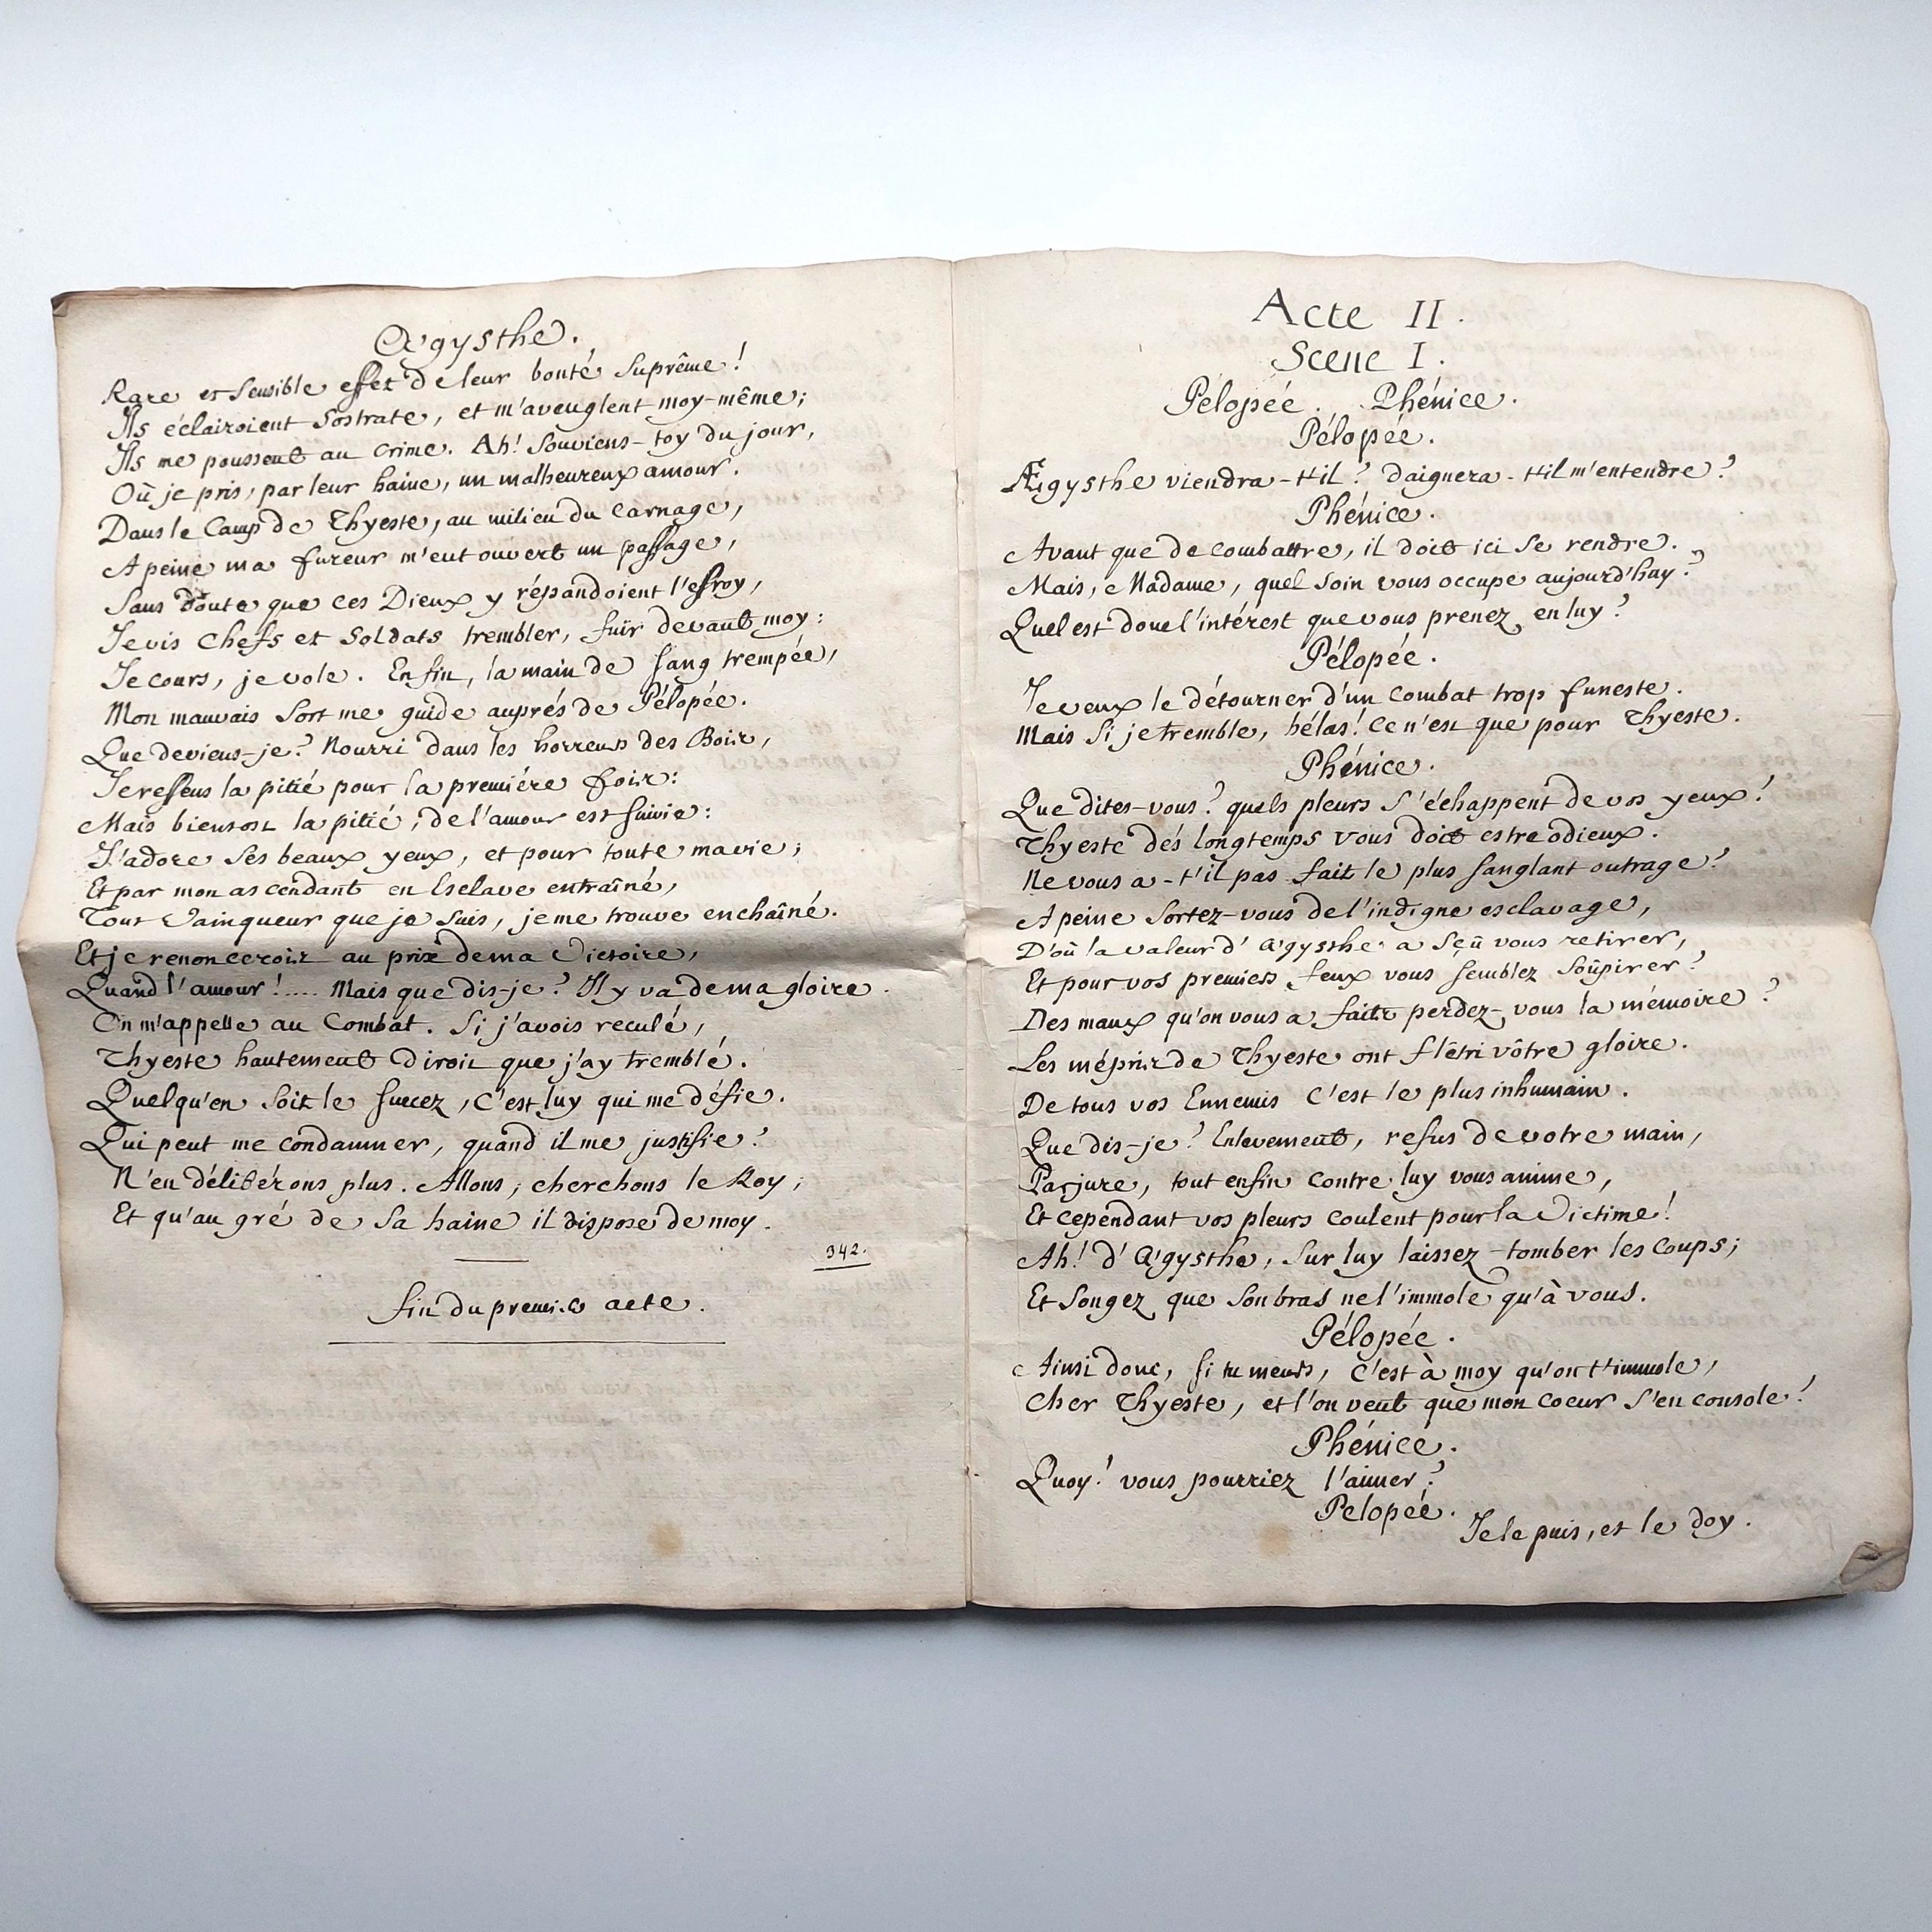 Ægysthe.
Rare et sensible effet de leur bonté suprême!
Ils éclairoient Sostrate, et m'aveuglent moy-même;
Ils me poussent au crime. Ah! souviens-toy du jour,
Où je pris, par leur haine, un malheureux amour.
Dans le Camp de Thyeste, au milieu du carnage,
A peine ma fureur m'eut ouvert un passage,
Sans doute que ces Dieux y répandoient l'effroy,
Je vis chefs et soldats trembler, fuïr devant moy:
Je cours, je vole. Enfin, la main de sang trempée,
Mon mauvais sort me guide auprés de Pélopée.
Que deviens-je? Nourri dans les horreurs des Bois,
Je ressens la pitié pour la premiére fois:
Mais bientost la pitié, de l'amour est suivie:
J'adore ses beaux yeux, et pour toute ma vie;
Et par mon ascendant en Esclave entraîné,
Tout Vainqueur que je suis, je me trouve enchaîné.
Et je renoncerois au prix de ma Victoire,
Quand l'amour!.... Mais que dis-je? Il y va de ma gloire.
On m'appelle au Combat. Si j'avois reculé,
Thyeste hautement diroit que j'ay tremblé.
Quelqu'en soit le succez, c'est luy qui me défie.
Qui peut me condamner, quand il me justifie?
N'en délibérons plus. Allons, cherchons le Roy;
Et qu'au gré de sa haine il dispose de moy.
342.
fin du premier acte.
Acte II.
Scene I.
Pélopée. Phénice.
Pélopée.
Ægysthe viendra-t-il? daignera-t-il m'entendre?
Phénice.
Avant que de combattre, il doit ici se rendre.
Mais, Madame, quel soin vous occupe aujourd'huy?
Quel est donc l'intérest que vous prenez en luy?
Pélopée.
Je veux le détourner d'un combat trop funeste.
Mais si je tremble, hélas! ce n'est que pour Thyeste.
Phénice.
Que dites-vous? quels pleurs s'échappent de vos yeux!
Thyeste dés longtemps vous doit estre odieux.
Ne vous a-t'il pas fait le plus sanglant outrage?
A peine sortez-vous de l'indigne esclavage,
D'où la valeur d'Ægysthe a sçû vous retirer,
Et pour vos premiers feux vous semblez soûpirer?
Des maux qu'on vous a faits perdez-vous la mémoire?
Les mépris de Thyeste ont flêtri vôtre gloire.
De tous vos Ennemis c'est le plus inhumain.
Que dis-je? Enlevement, refus de votre main,
Parjure, tout enfin contre luy vous anime,
Et cependant vos pleurs coulent pour la Victime!
Ah! d'Ægysthe, sur luy laissez-tomber les coups;
Et songez que son bras ne l'immole qu'à vous.
Pélopée.
Ainsi donc, si tu meurs, c'est à moy qu'on t'immole,
Cher Thyeste, et l'on veut que mon coeur s'en console!
Phénice.
Quoy! vous pourriez l'aimer?
Pelopée.
Je le puis, et le doy.